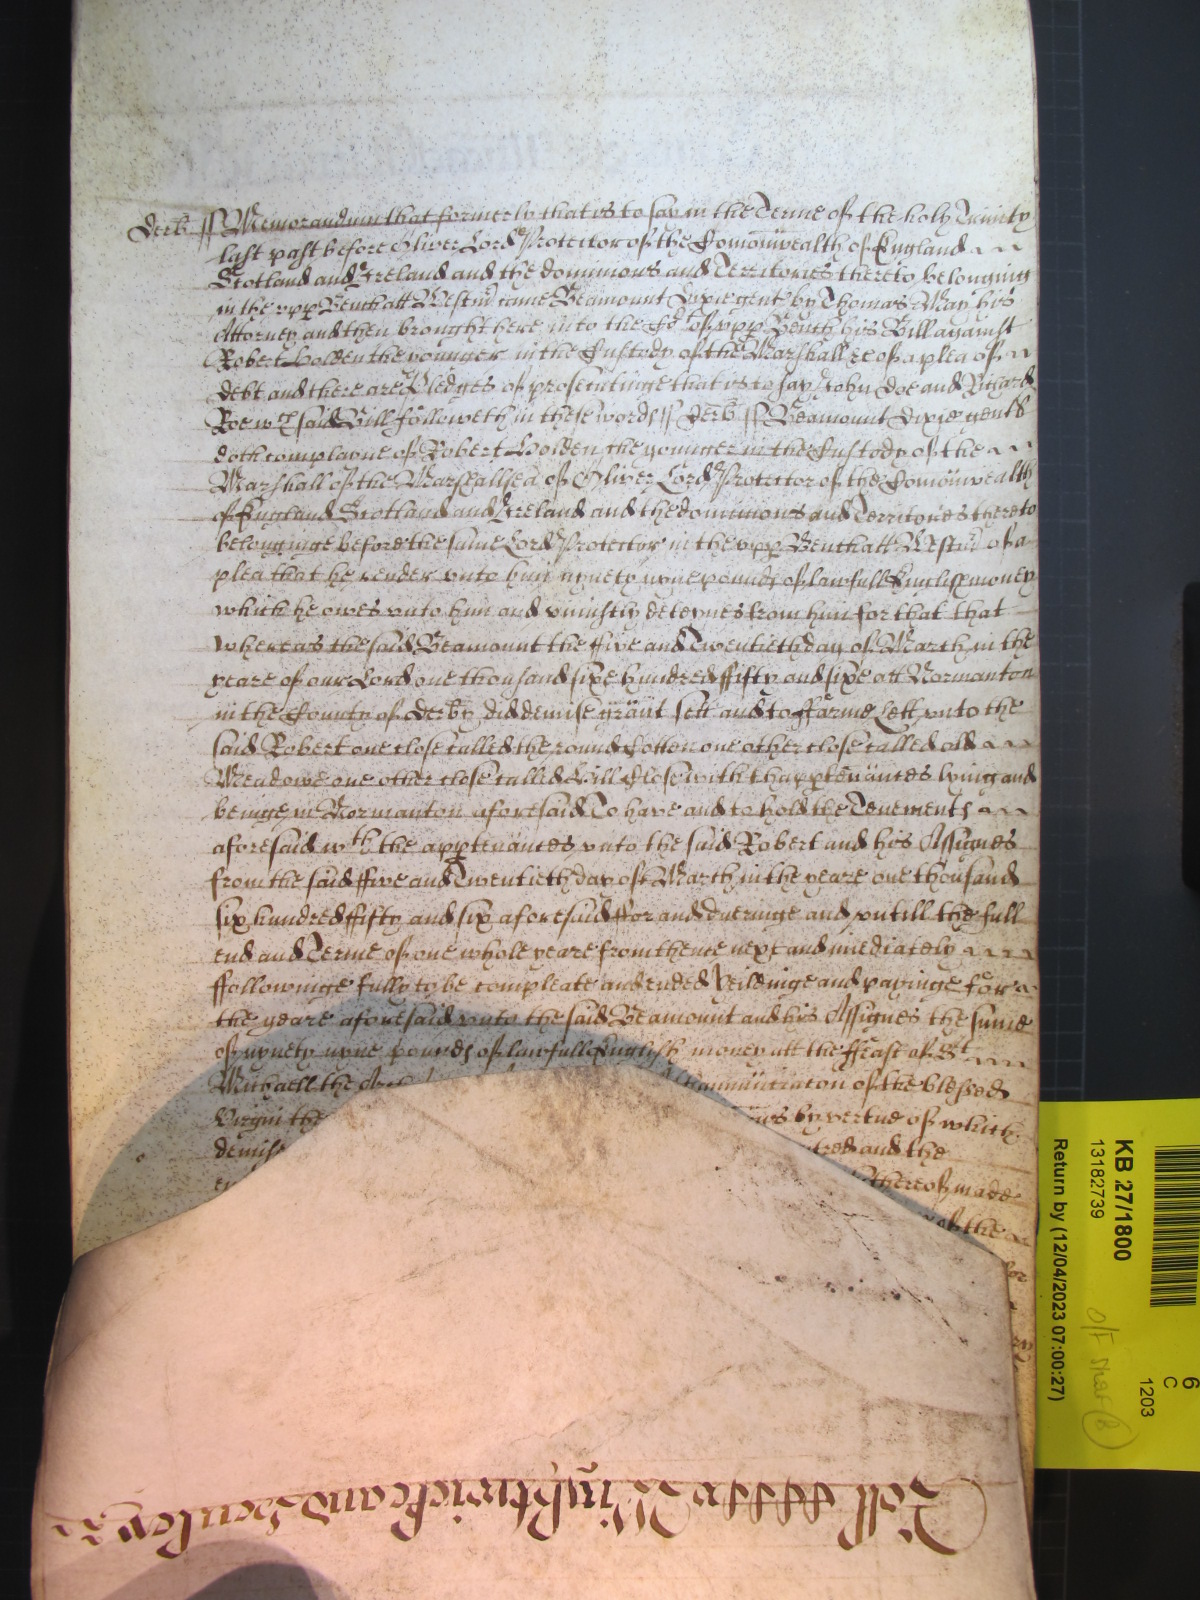 Derb ss Memorandum that formerly that is to say in the Terme of the holy Trinity
last past before Oliver Lord Protector of the Comonwealth of England
Scotland and Ireland and the dominions and Territories thereto belonging
in the upp Bench att Westmr came Beamount Dixie gent by Thomas May his
Attorney and then brought here into the Cort of upp Bench his Bill against
Robert Holden the younger in the Custody of the Marshall &c of a plea of
debt and there are Pledges of prosecutinge that is to say John Doe and Richard
Roe wch said Bill followeth in these words ss Derb ss Beamount Dixie gent
doth complayne of Robert Holden the younger in the Custody of the
Marshall of the Marshallsea of Oliver Lord Protector of the Comonwealth
of England Scotland and Ireland and the dominions and Territories thereto
belonginge before the same Lord Protector in the upp Bench att Westmr of a
plea that he render unto him nynety nyne pounds of lawfull English money
which he owes unto him and uniustly deteynes from him for that that
whereas the said Beamount the ffive and Twentieth day of March in the
yeare of our Lord one thousand sixe hundred ffifty and sixe att Normanton
in the County of Derby did demise graunt sett and to ffarme Lett unto the
said Robert one close called the round one other close called old
Meadowe one other close called Hill Close with thapptenances lying and
beinge in Normanton aforesaid To have and to hold the Tenements
aforesaid wth the apptenances unto the said Robert and his Assignes
from the said ffive and Twentieth day of March in the yeare one thousand
six hundred ffifty and six aforesaid ffor and dueringe and untill the full
end and Terme of one whole yeare from thence next and imediately
ffollowinge fully to be compleate and ended Yeildinge and payinge for
the yeare aforesaid unto the said Beamount and his Assignes the sume
of nynety nyne pounds of lawfull English money att the ffeast of St
Michaell the Annuntiacon of the blessed
Virgin the by vertue of which
demise and the
thereof made
of the
KB 27/1800
13182739
Return by (12/04/2023 07:00:27)
6
C
1203
Roll